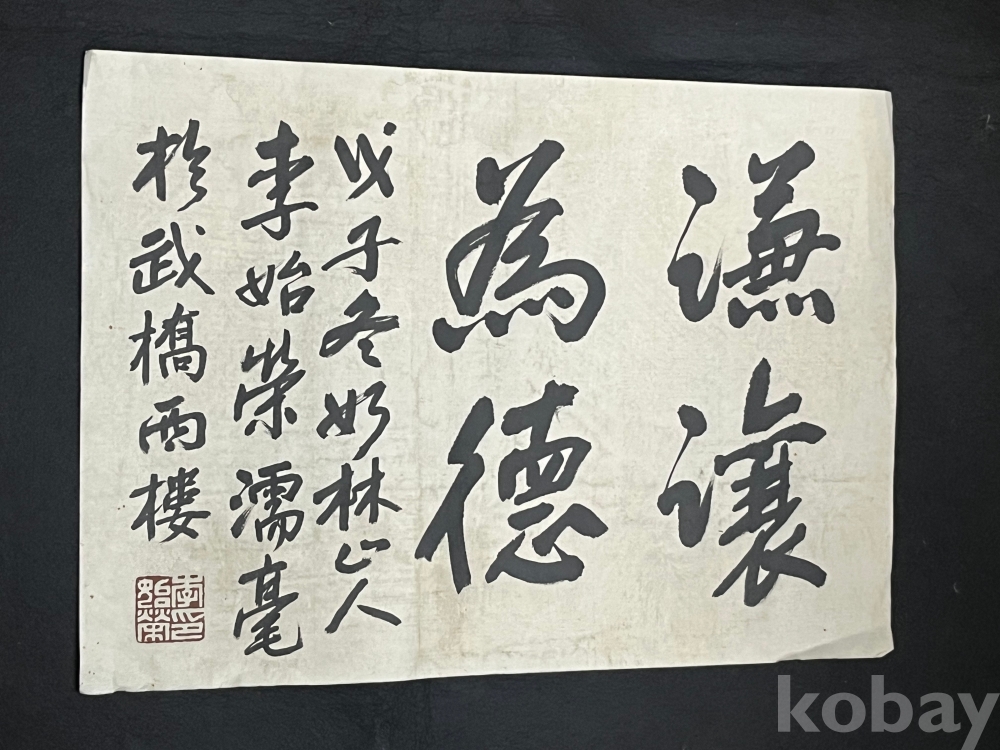 謙讓
為德
戊子冬林山人
李始榮濡毫
於武橋西樓
李印始榮
kobay